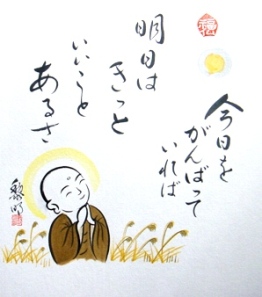 今日を
がんばって
いれば
明日は
きっと
いいこと
あるさ